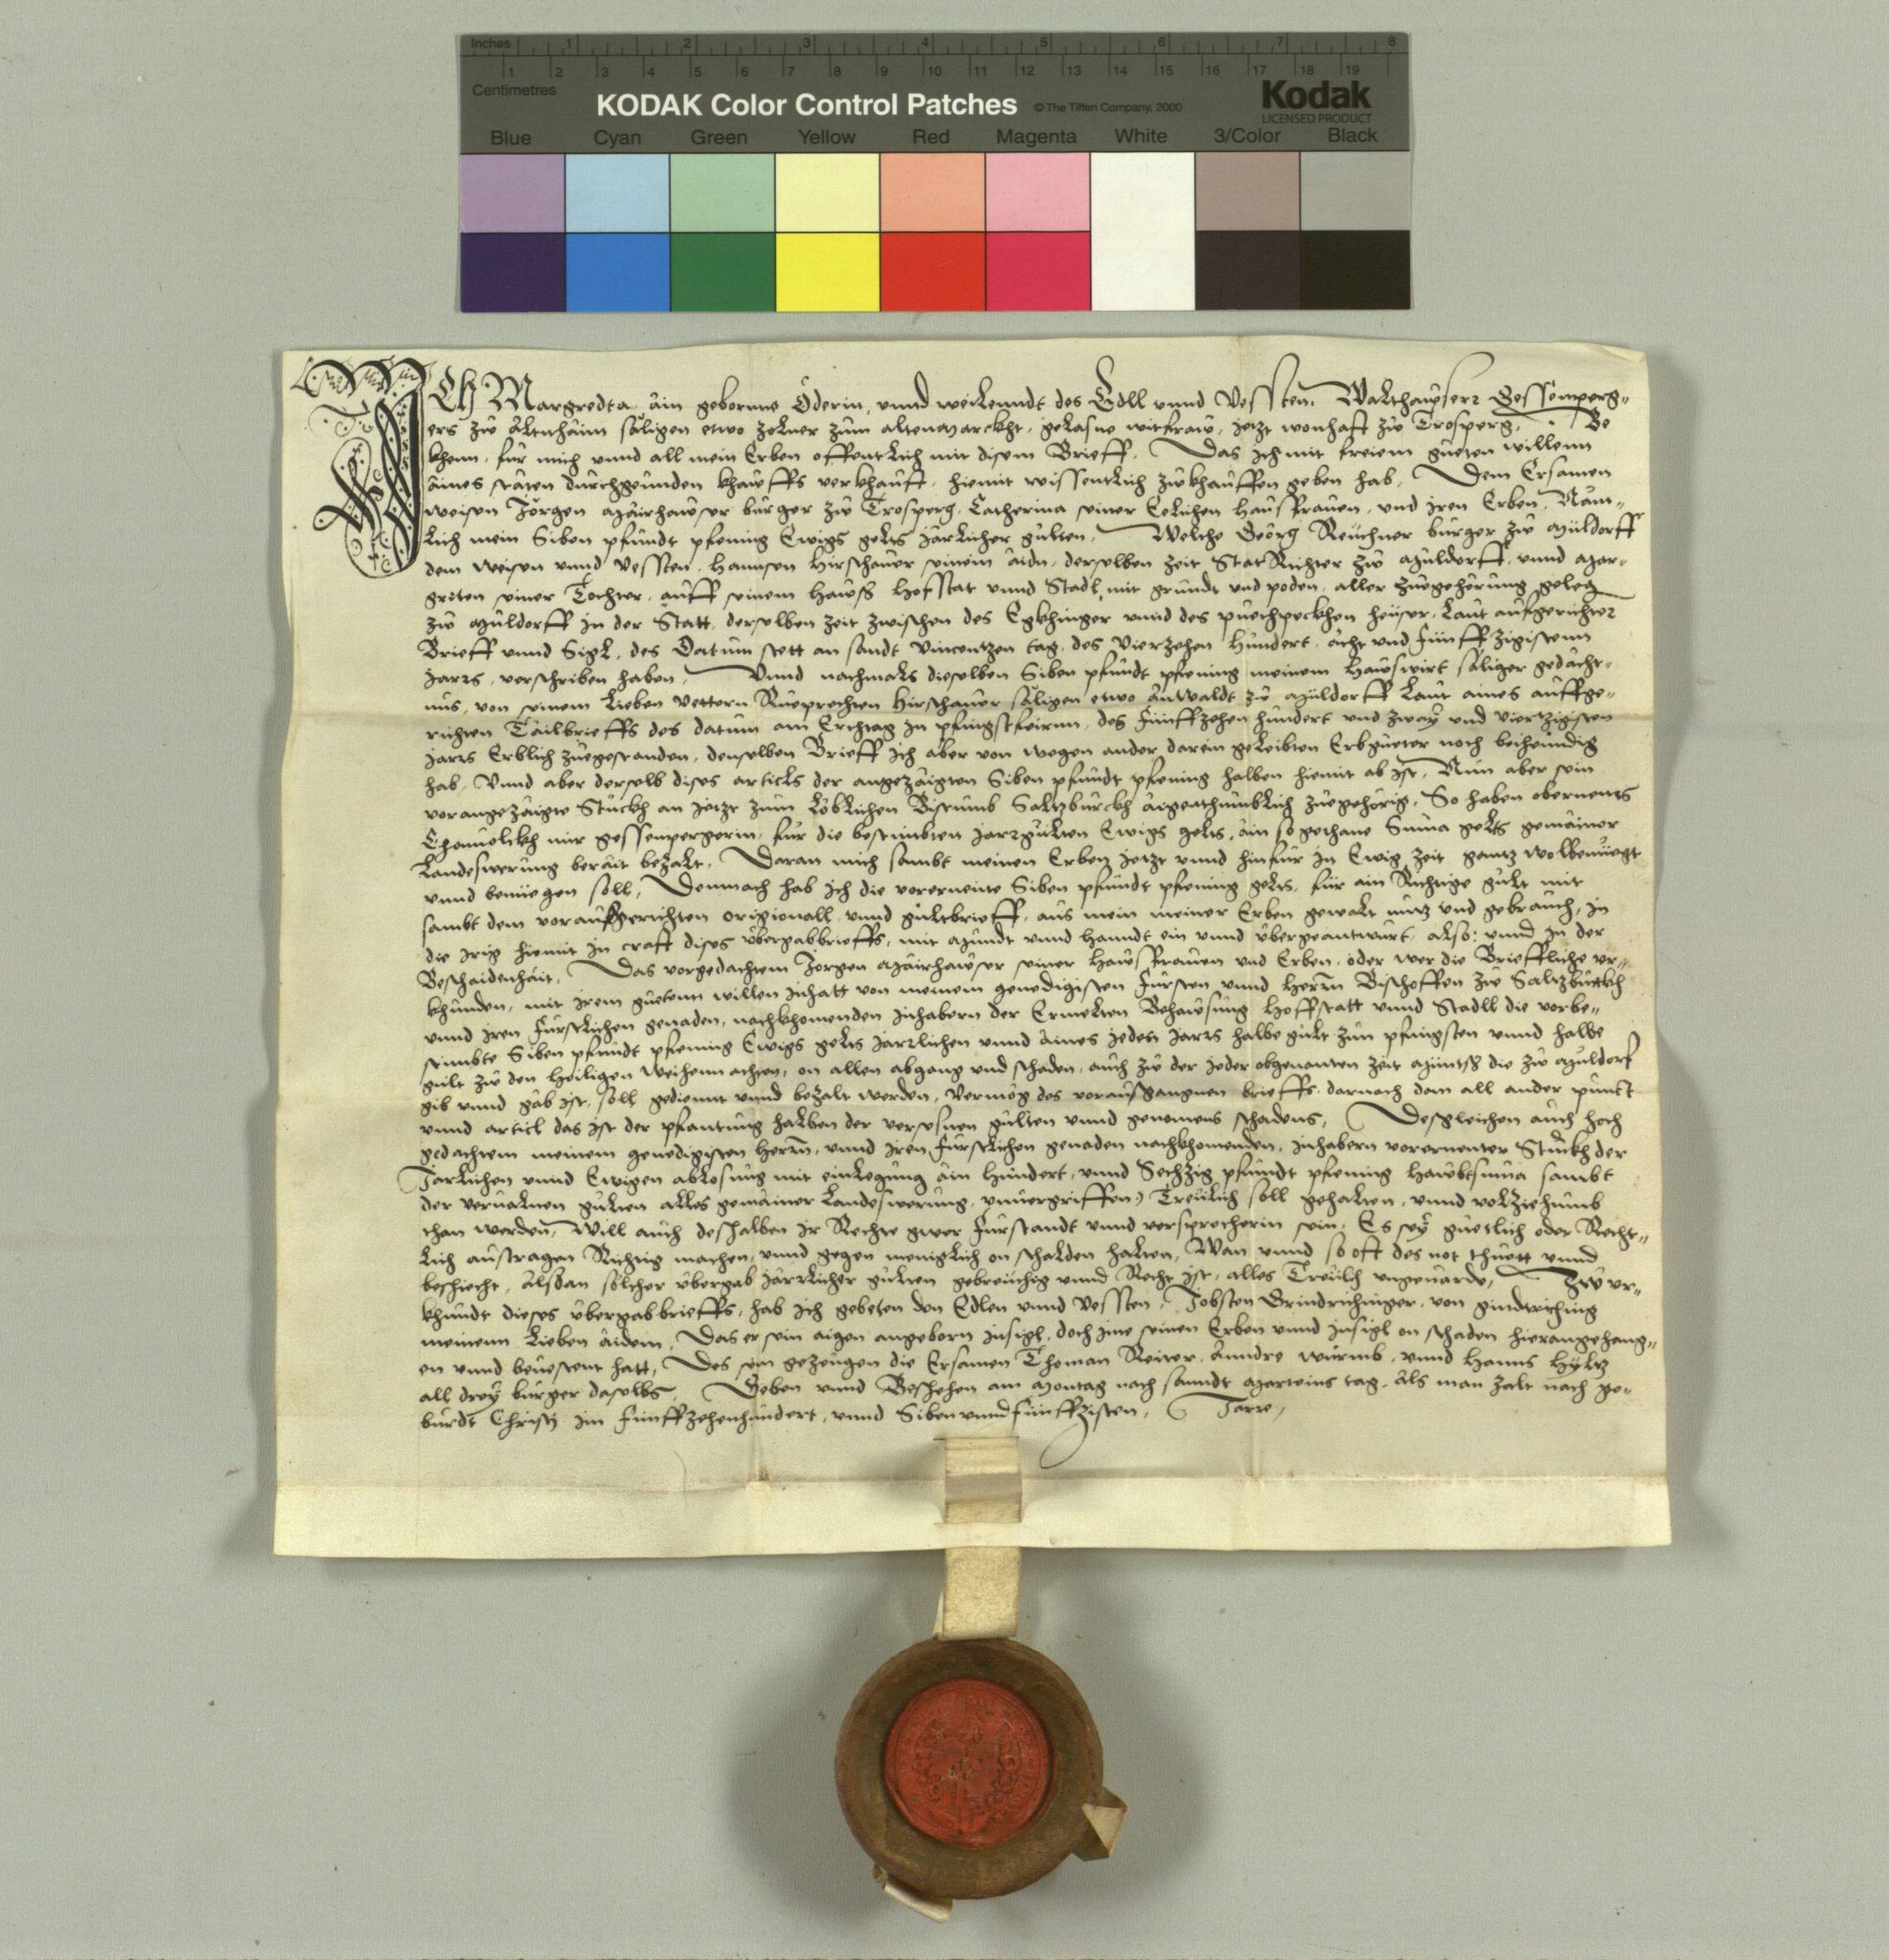 Inches 1 2 3 4 5 6 7 8
1 2 3 4 5 6 7 8 9 10 11 12 13 14 15 16 17 18 19
Centimetres
KODAK Color Control Patches © The Tiffen Company, 2000 Kodak
LICENSED PRODUCT
Blue Cyan Green Yellow Red Magenta White 3/Color Black
ICh Margredta ain geborne Öderin, vnnd weilenndt des Edll vnnd Vessten Walthausers Gessemperg„
ers zw altnhaim säligen etwo zolner zum altenmarckht, gelasne witfraw, jetzt wonhaft zw Trosperg. Be
khenn, für mich vnnd all mein Erben offentlich mit disem Brieff, Das ich mit freiem gueten willenn
aines stäten durchgeunden khawffs verkhaufft, hiemit wissentlich zwkhauffen geben hab, Dem Ersamen
weisen Jörgen Mairhawser burger zw Trosperg, Catherina seiner Eelichen Hausfrauen, vnd jren Erben, Näm„
lich mein Siben pfundt pfening Ewigs gelts järlicher gülten, Welche Georg Reuchner burger zw Müldorff
dem weisen vnnd Vessten, Hannsen Hirschauer seinem aidn, derselben zeit StatRichter zw Müldorff, vnnd Mar„
greten seiner Tochter, auff seinem Hawß Hofstat vnnd Stadl, mit grundt vnd poden, aller zuegehörung geleg
zw Müldorff in der Statt, derselben zeit zwischen des Egkhinger vnnd des puechpeckhen heüser, Laut aufgerichter
Brieff vnnd Sigl, des Datum stett an sandt Vincentzen tag, des Vierzehen hundert, acht vnd Fünffzigistenn
Jarrs, verschriben haben, Vnnd nachmals dieselben Siben pfundt pfening meinem Hawswirt säliger gedächt„
nus, von seinem Lieben vettern Rueprechten Hirschauer säligen etwo anwaldt zw Müldorff Laut aines auffge„
richten Tailbrieffs des datum am Erchtag in pfingstfeirnn, des Fünffzehen hundert vnd zway vnd viertzigisten
jarrs Erblich zuegestanden, denselben Brieff ich aber von wegen ander darein geleibten Erbgüeter noch beihendig
hab, Vnnd aber derselb dises articls der angezaigten Siben pfundt pfening halben hiemit ab ist, Nun aber sein
vorangezaigte Stuckh an jetzt zum Löblichen Bistumb Saltzburckh aigenthumblich zuegehörig, So haben obernents
mir gessempergerin, für die bestimbten jarrgülten Ewigs gelts, ain so gethane Suma gelts gemainer
Landeswerung berait bezalt, Daran mich sambt meinen Erben jetzt vnnd hinfür in Ewig zeit gantz wolbenüegt
vnnd benüegen soll, Demnach hab ich die vorernente Siben pfundt pfening gelts, für ain Richtige gült mit
sambt dem voraufgerichten originall vnnd gültbrieff, aus mein meiner Erben gewalt nutz vnd gebrauch, in
die irig hiemit in craft dises übergabbrieffs, mit Mundt vnnd Hanndt ein vnnd übergeantwurt, also: vnnd in der
Beschaidenhait, Das vorgedachtem Jorgen Mairhawser seiner Hawsfrauen vnd Erben, oder wer die Briefliche vr„
khunden, mit jrem guetenn willen inhatt von meinem genedigisten Fürsten vnnd Herrn Bischoffen zw Saltzburckh
vnnd iren Fürstlichen genaden, nachkhomenden inhabern der Ermelten Behawsung Hoffstatt vnnd Stadll die vorbe„
stimbte Siben pfundt pfening Ewigs gelts jarrlichen vnnd aines jeden jarrs halbe gült zun pfingsten vnnd halbe
gült zw den heiligen Weihennachten, on allen abgang vnd schaden, auch zw der jeder obgenanten zeit Müntß die zw Müldorf
gib vnnd gäb ist, soll gedient vnnd bezalt werden, Vermög des vorausgangnen brieffs, darnach dann all ander punct
vnnd articl das ist der pfantung halben der versesnen gülten vnnd genomens schadens, Desgleichen auch hoch
gedachtem meinem genedigisten Herrn, vnnd iren Fürstlichen genaden nachkhomenden, inhabern vorernenter Stuckh der
Järlichen vnnd Ewigen ablosung mit einlegung ain hundert, vnnd Sechzig pfundt pfening Haubtsuma sambt
der gülten alles gemainer Landeswerung, vnuergriffen) Treülich soll gehalten, vnnd volziehung
than werden, Will auch deshalben jr Rechte gwer fürstandt vnnd versprecherin sein, Es sey güetlich oder Recht„
lich austragen Richtig machen, vnnd gegen menigklich on schalden halten, Wan vnnd so oft des not thuett vnnd
beschiecht, alsdan solcher übergab järrlicher gülten gebreuchig vnnd Recht ist, alles Treülich vngeuärde, Zw vr„
khundt dieses übergabbrieffs, hab ich gebeten den Edlen vnnd Vessten, Jobsten von
meinenn Lieben aidem, Das er sein aigen angeborn insigl, doch ime seinen Erben vnnd insigl on schaden hierangehang„
en vnnd beuestent hatt, Des sein gezeugen die Ersamen Thoman Reiter, Anndre Würmb, vnnd Hanns
all drey burger daselbs, Geben vnnd Beschehen am Montag nach sanndt Marteins tag, als man zalt nach ge„
burdt Christy im Fünffzehenhundert, vnnd Sibenvnndfünffzisten, Jarre,